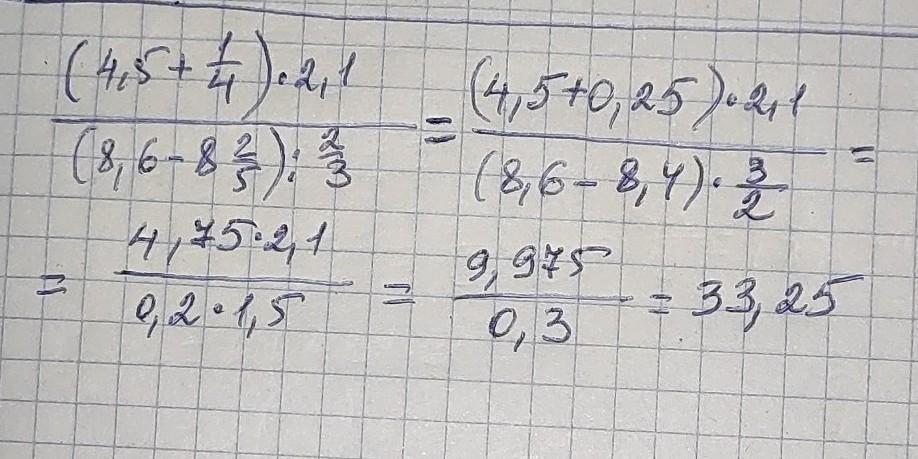 (4,5+1/4)·2,1 / (8,6-8 2/5):2/3 = (4,5+0,25)·2,1 / (8,6-8,4)·3/2 =
= 4,75·2,1 / 0,2·1,5 = 9,975 / 0,3 = 33,25